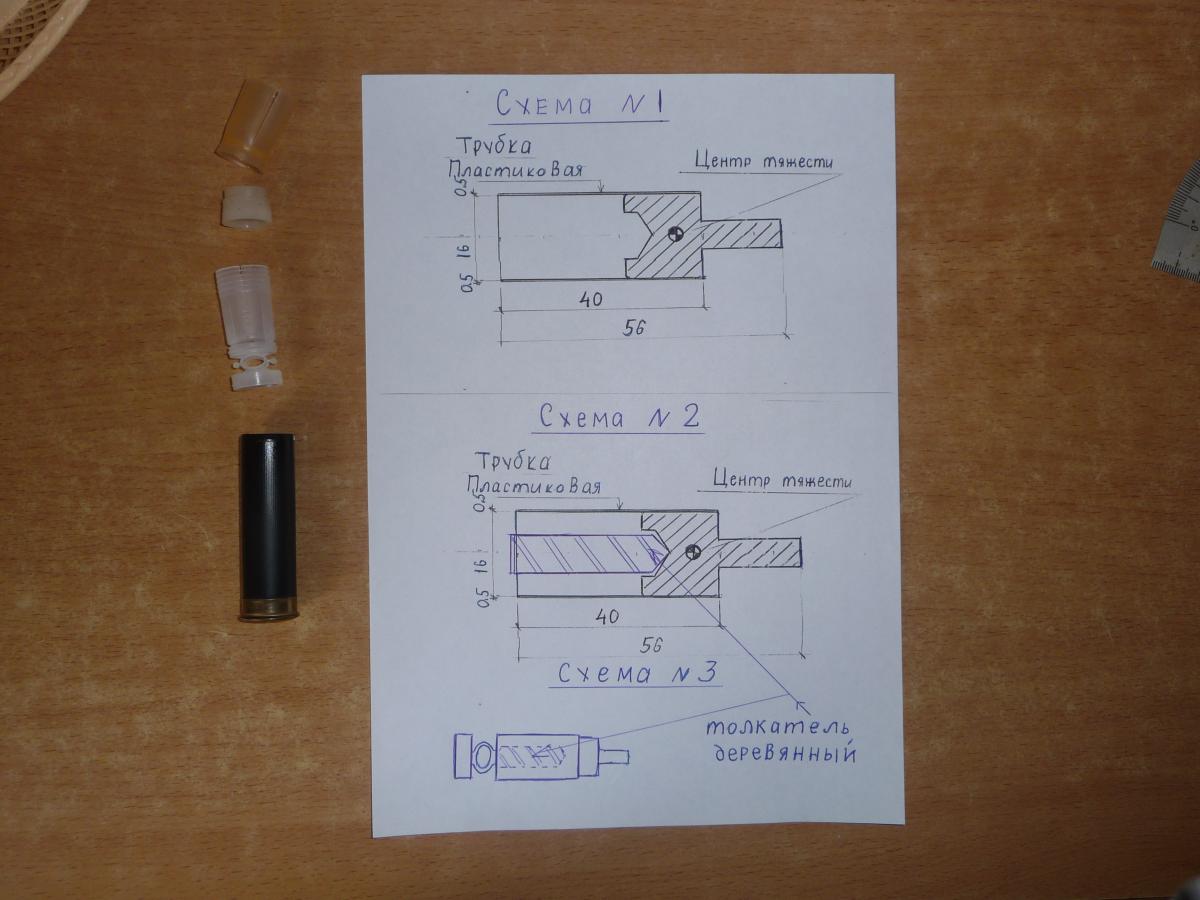 Схема N1
Трубка
Пластиковая
Центр тяжести
0,5
16
0,5
40
56
Схема N2
Трубка
Пластиковая
Центр тяжести
0,5
16
0,5
40
56
Схема N3
толкатель
деревянный